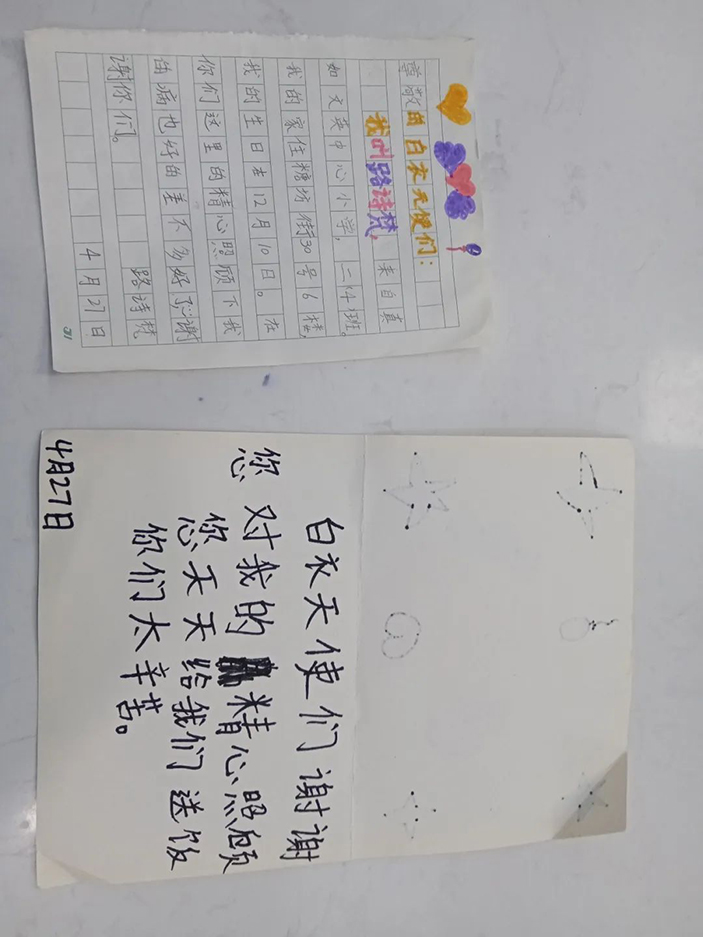 尊敬的白衣天使们：
我叫路诗梵，来自真
如文英中心小学，二（4）班。
我的家住糖坊街30号6楼，
我的生日在12月10日。在
你们这里的精心照顾下我
的病也好的差不多好了谢
谢你们。
路诗梵
4月27日
白衣天使们谢谢
您对我的精心照顾
您天天给我们送饭
你们太辛苦。
4月27日